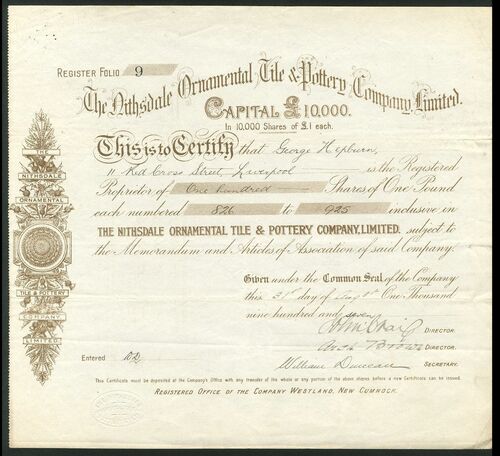 Register Folio 9
The Nithsdale Ornamental Tile & Pottery Company, Limited.
Capital £10,000.
In 10,000 Shares of £1 each.
This is to Certify that George Hepburn,
11 Red Cross Street, Liverpool is the Registered
Proprietor of One hundred Shares of One Pound
each numbered 826 to 925 inclusive in
THE NITHSDALE ORNAMENTAL TILE & POTTERY COMPANY, LIMITED. subject to
the Memorandum and Articles of Association of said Company.
THE
NITHSDALE
ORNAMENTAL
TILE & POTTERY
COMPANY
LIMITED
Given under the Common Seal of the Company
this 21st day of One Thousand
nine hundred and seven
Craig DIRECTOR.
Brown DIRECTOR.
Entered
William Duncan SECRETARY.
This Certificate must be deposited at the Company's Office with any transfer of the whole or any portion of the above shares before a new Certificate can be issued.
Registered Office of the Company Westland, New Cumnock.